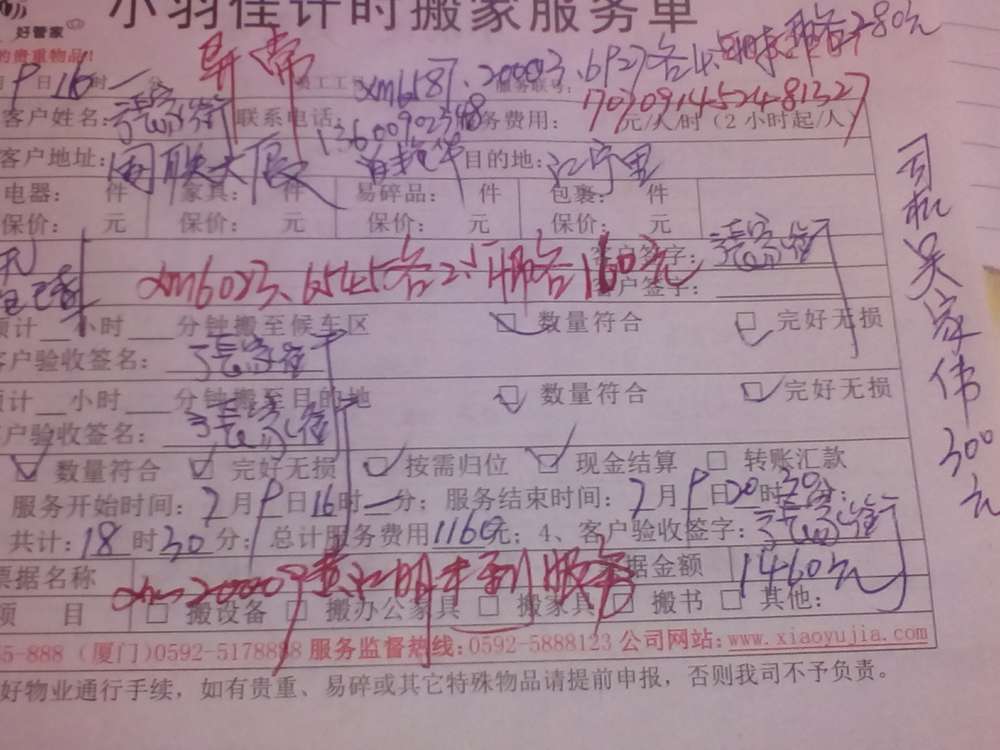 小羽佳计时搬家服务单
好管家
的贵重物品!
异常
月9日16时一分 员工工号: xm6187.20003.6927各4.5 服务联号: 280元
客户姓名: 联系电话: 13600902348 务费用: 1703091452481327 元/人/时(2小时起/人)
客户地址: 闽联大厦 目的地: 江宁里
电器: 件 家具: 件 易碎品: 件 包裹: 件
保价: 元 保价: 元 保价: 元 保价: 元
司机吴家伟300元
客户签字:
xm6023.6545各2.5 各160元
客户签字:
预计__小时___分钟搬至候车区 数量符合 完好无损
客户验收签名:
预计__小时___分钟搬至目的地 数量符合 完好无损
客户验收签名:
数量符合 完好无损 按需归位 现金结算 转账汇款
服务开始时间: 2月9日16时一分; 服务结束时间: 2月9日20时30分;
共计: 18时30分; 总计服务费用1160元; 4、客户验收签字:
票据名称 据金额 1460元
xm20009黄江明未到服务
项 目 搬设备 搬办公家具 搬家具 搬书 其他:
55-888 (厦门)0592-5178898 服务监督热线:0592-5888123 公司网站:www.xiaoyujia.com
好物业通行手续,如有贵重、易碎或其它特殊物品请提前申报,否则我司不予负责。